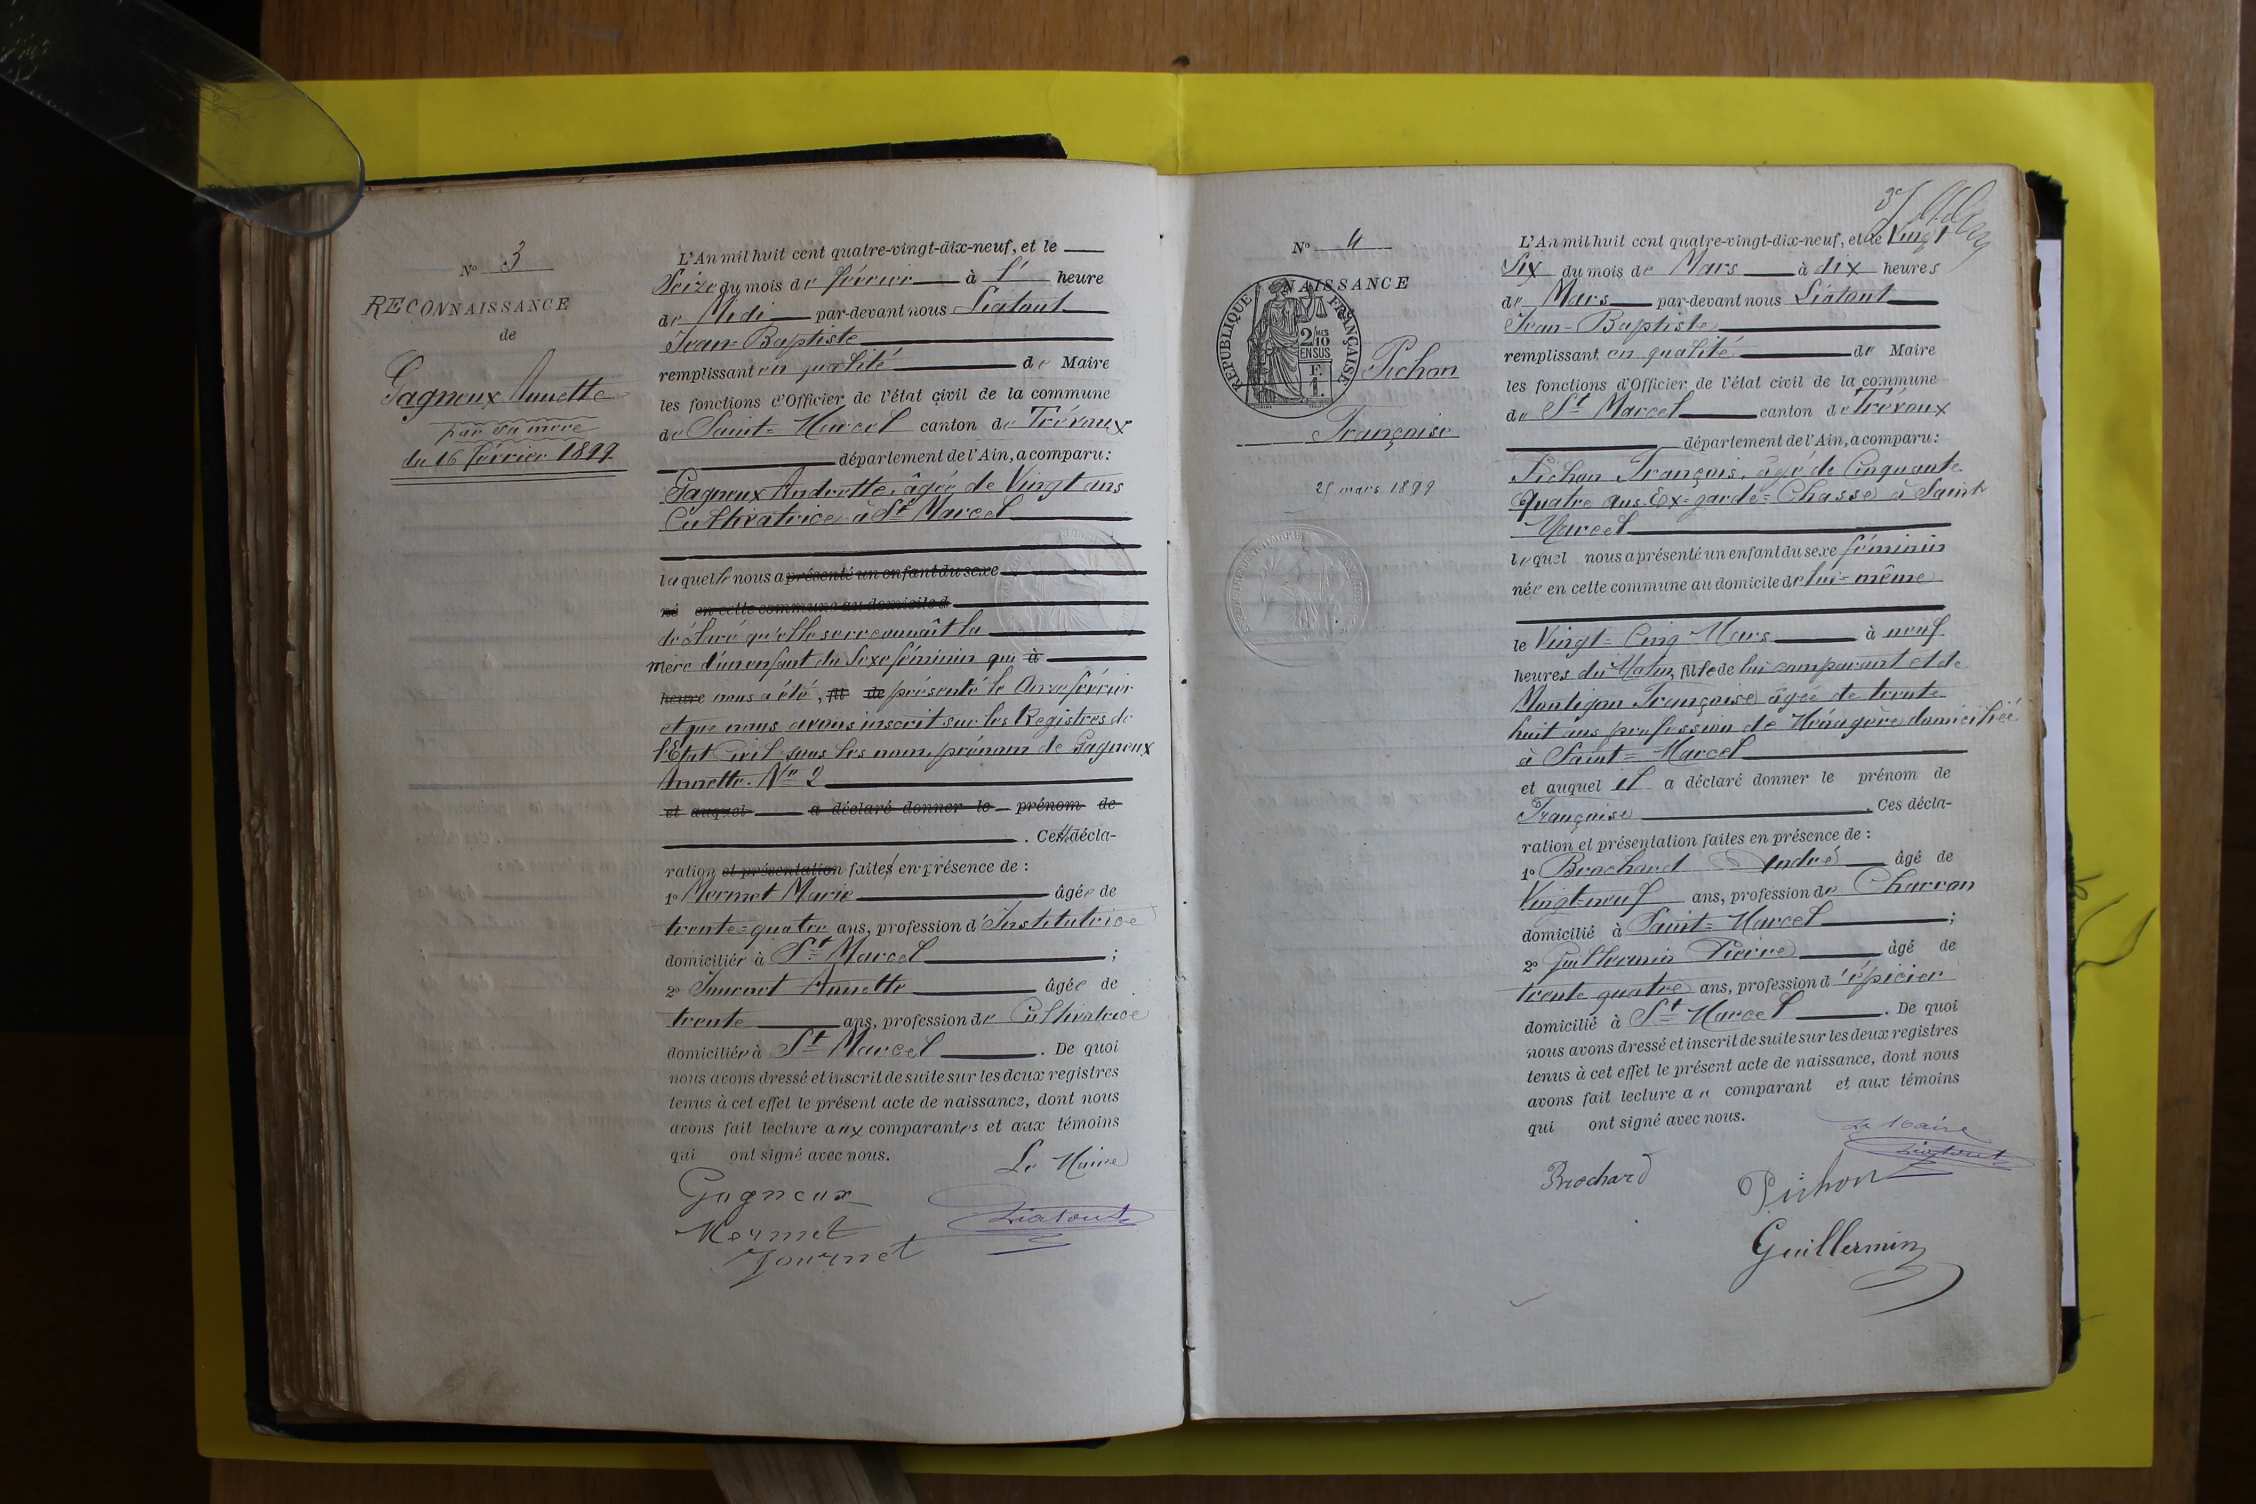 N° 3
RECONNAISSANCE
de
Gagneux Annette
par sa mère
du 16 février 1899
L'An mil huit cent quatre-vingt-dix-neuf, et le
Seize du mois de février à heure
de Midi par-devant nous Liatout
Jean-Baptiste
remplissant en qualité de Maire
les fonctions d'Officier de l'état civil de la commune
de Saint-Marcel canton de Trévoux
département de l'Ain, a comparu :
Gagneux Andrette, âgée de Vingt ans
Cultivatrice à St Marcel
laquelle nous a présenté un enfant du sexe
né en cette commune au domicile d
déclaré qu'elle se reconnaît la
mère d'un enfant du Sexe féminin qui à
heure nous a été, fil de présenté le onze février
et que nous avons inscrit sur les Registres de
l'Etat Civil sous les nom, prénom de Gagneux
Annette. N° 2
et auquel a déclaré donner le prénom de
. Cette décla-
ration et présentation faites en présence de :
1° Mermet Marie âgée de
trente-quatre ans, profession d'Institutrice
domiciliée à St Marcel ;
2° Journet Annette âgée de
trente ans, profession de Cultivatrice
domiciliée à St Marcel . De quoi
nous avons dressé et inscrit de suite sur les deux registres
tenus à cet effet le présent acte de naissance, dont nous
avons fait lecture aux comparantes et aux témoins
qui ont signé avec nous.
Le Maire
Gagneux
Liatout
Mermet
Journet
N° 4
NAISSANCE
REPUBLIQUE FRANÇAISE
2/10 EN SUS
F. 1.
Pichon
Françoise
25 mars 1899
L'An mil huit cent quatre-vingt-dix-neuf, et le Vingt
Six du mois de Mars à dix heures
de Mars par-devant nous Liatout
Jean-Baptiste
remplissant en qualité de Maire
les fonctions d'Officier de l'état civil de la commune
de St Marcel canton de Trévoux
département de l'Ain, a comparu :
Pichon François, âgé de Cinquante
Quatre ans. Ex-garde-Chasse à Saint
Marcel
lequel nous a présenté un enfant du sexe féminin
née en cette commune au domicile de lui-même
le Vingt-Cinq Mars à neuf
heures du Matin, fille de lui comparant et de
Montigon Françoise âgée de trente
huit ans profession de Ménagère domiciliée
à Saint-Marcel
et auquel il a déclaré donner le prénom de
Françoise . Ces décla-
ration et présentation faites en présence de :
1° Brochard André âgé de
Vingt-neuf ans, profession de Charron
domicilié à Saint-Marcel ;
2° Guillermin Pierre âgé de
trente quatre ans, profession d'épicier
domicilié à St Marcel . De quoi
nous avons dressé et inscrit de suite sur les deux registres
tenus à cet effet le présent acte de naissance, dont nous
avons fait lecture au comparant et aux témoins
qui ont signé avec nous.
Le Maire
Liatout
Brochard
Pichon
Guillermin